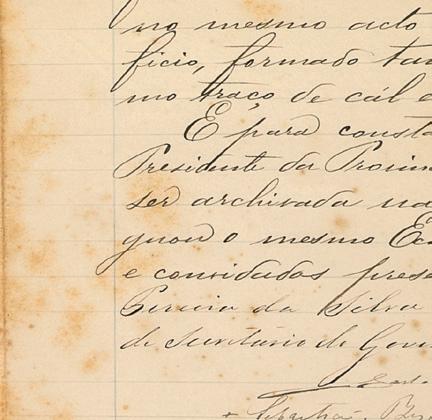 no mesmo acto
ficio, formado tam
mo traço de cál e
E para consta
Presidente da Provin
ser archivada na
gnou o mesmo Ex
e convidados prese
Pereira da Silva
de Secretario do Gove